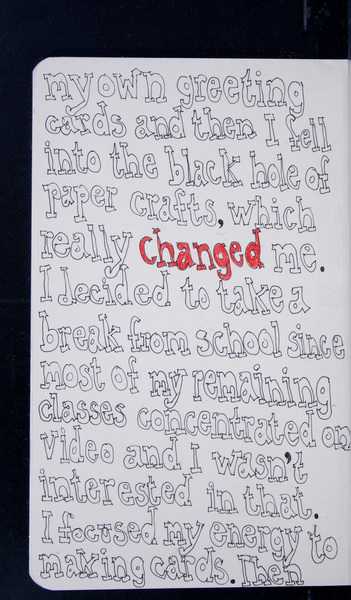 my own greeting
cards and then I fell
into the black hole of
paper crafts, which
really changed me.
I decided to take a
break from school since
most of my remaining
classes concentrated on
video and I wasn't
interested in that.
I focused my energy to
making cards. Then